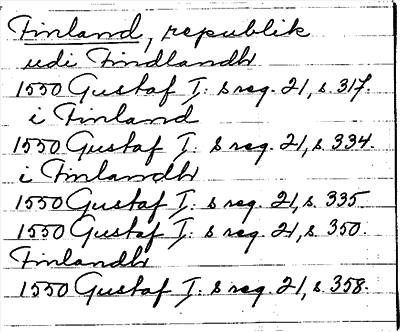 Finland, republik
udi Findlandh
1550 Gustaf I: s reg. 21, s. 317.
i Finland
1550 Gustaf I: s reg. 21, s. 334.
i Finlandh
1550 Gustaf I: s reg. 21, s. 335.
1550 Gustaf I: s reg. 21, s. 350.
Finlandh
1550 Gustaf I: s reg. 21, s. 358.